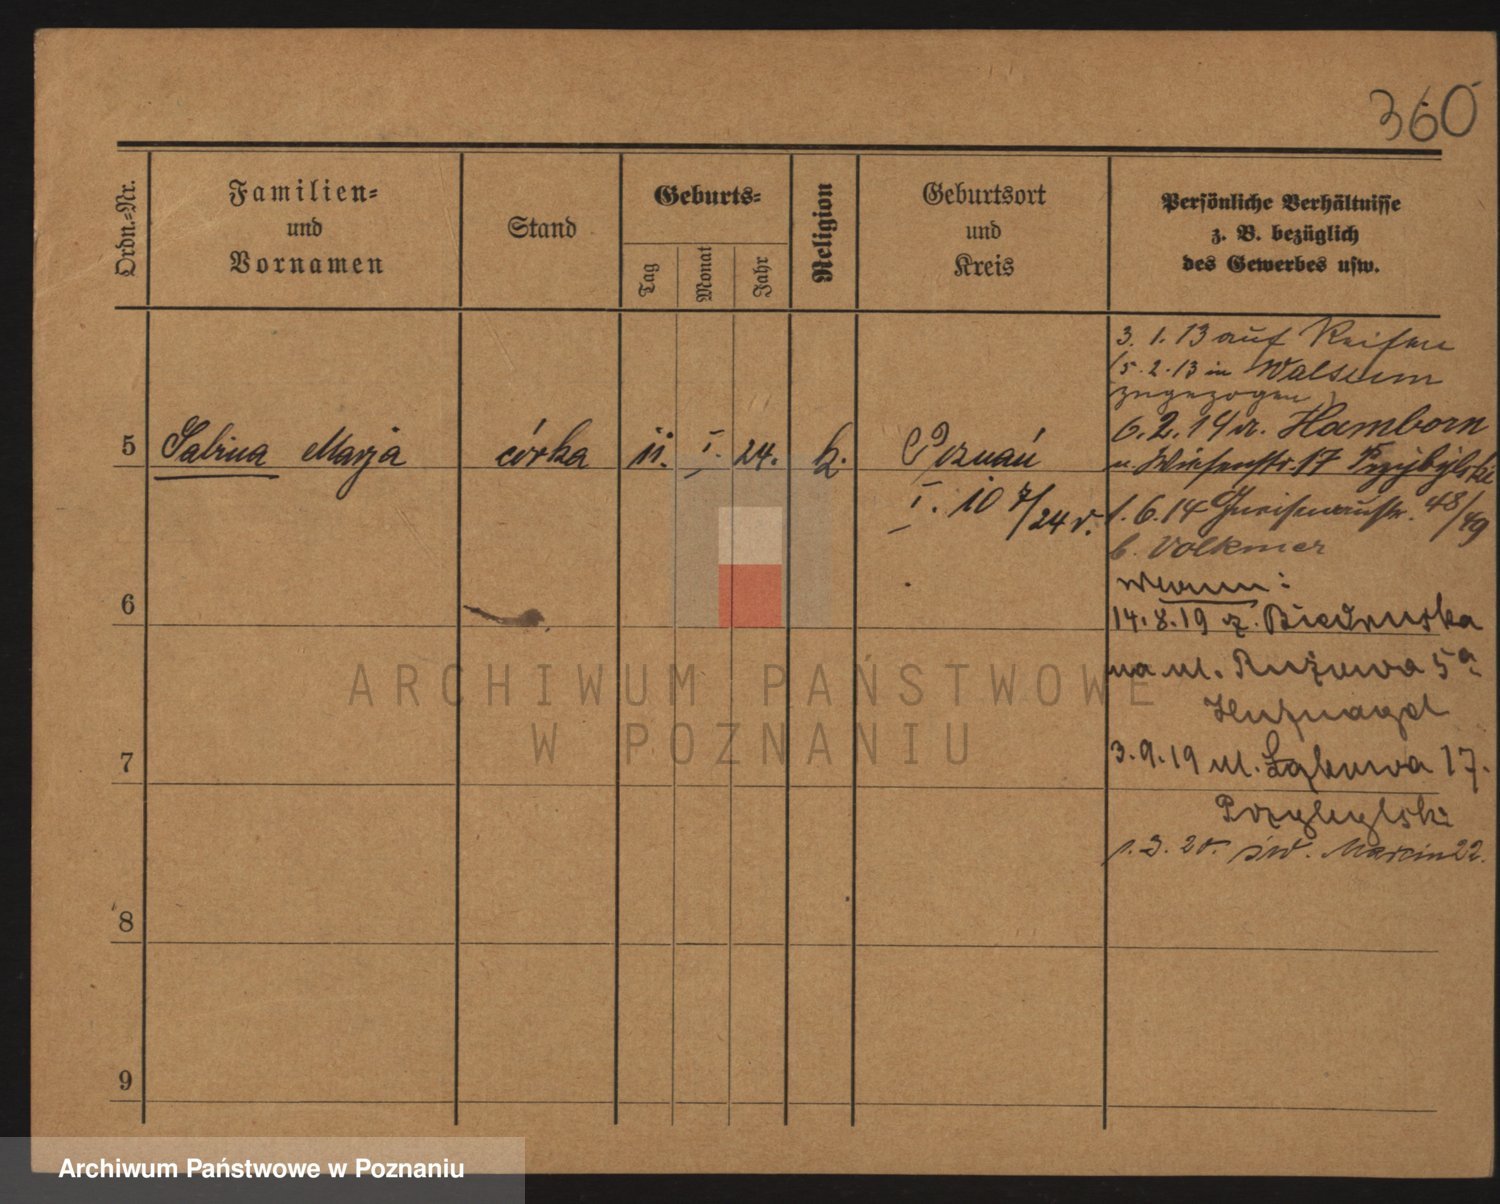 360
Ordn.=Nr.
Familien=
und
Vornamen
Stand
Geburts=
Tag
Monat
Jahr
Religion
Geburtsort
und
Kreis
Persönliche Verhältnisse
z. B. bezüglich
des Gewerbes usw.
3. 1. 13 auf Reisen
(5. 2. 13 in Walsum
zugezogen)
5 Sabina Marja córka 11. I. 24. k. Poznań
6. 2. 14 n. Hamborn
Wiesenstr. 17 Przybylski
I. 10 7/24 r.
1. 6. 14 Gneisenaustr. 48/49
b. Volkmer
6
14. 8. 19 z. Biedruska
na ul. Różowa 5a
7
3. 9. 19 ul. Łąkowa 17.
Przybylski
1. 3. 20. św. Marcin 22.
8
9
ARCHIWUM PAŃSTWOWE
W POZNANIU
Archiwum Państwowe w Poznaniu